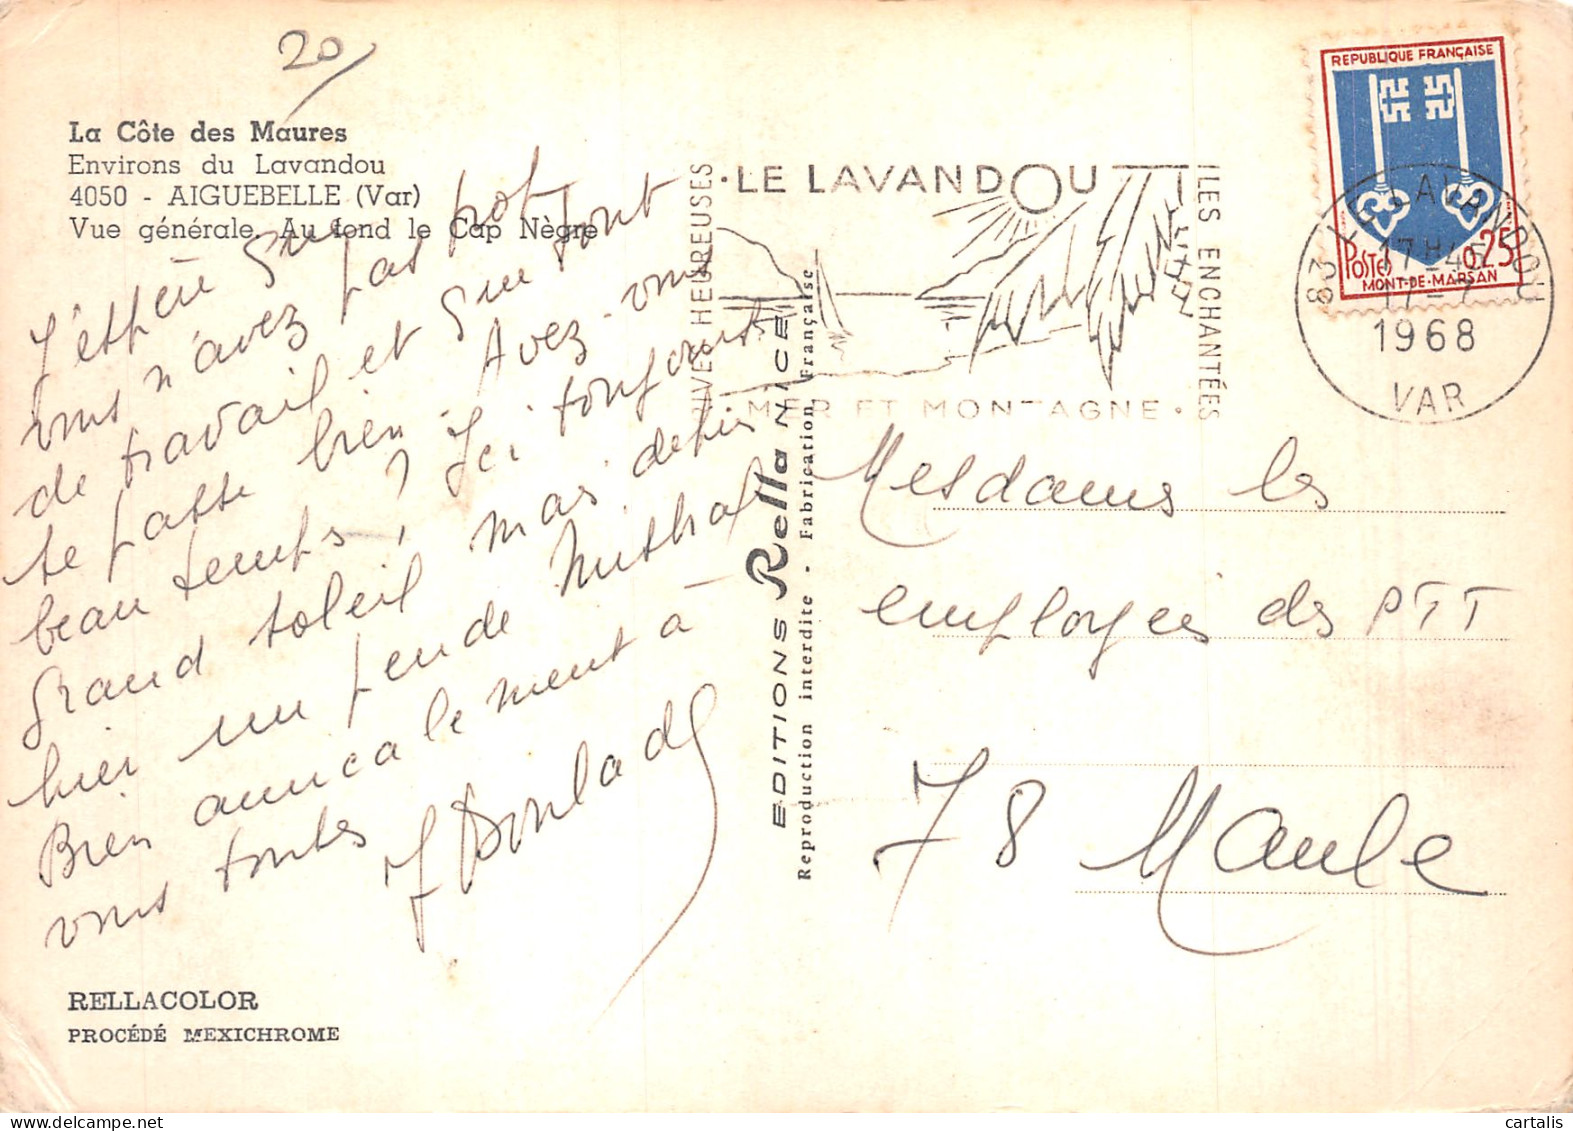 20
La Côte des Maures
Environs du Lavandou
4050 - AIGUEBELLE (Var)
Vue générale. Au fond le Cap Nègre
J'espère que
vous n'avez pas trop
de travail et que tout
se passe bien. Avez-vous
beau temps? Ici toujours
grand soleil, mais depuis
hier un peu de mistral
Bien amicalement à
vous toutes
RELLACOLOR
PROCÉDÉ MEXICHROME
EDITIONS Rella NICE
Reproduction interdite • Fabrication Française
RIVES HEUREUSES
• LE LAVANDOU
ILES ENCHANTÉES
MER ET MONTAGNE •
REPUBLIQUE FRANÇAISE
POSTES
0,25
MONT-DE-MARSAN
83 LE LAVANDOU
17H45
17-7
1968
VAR
Mesdames les
employées des PTT
78 Maule
cartalis